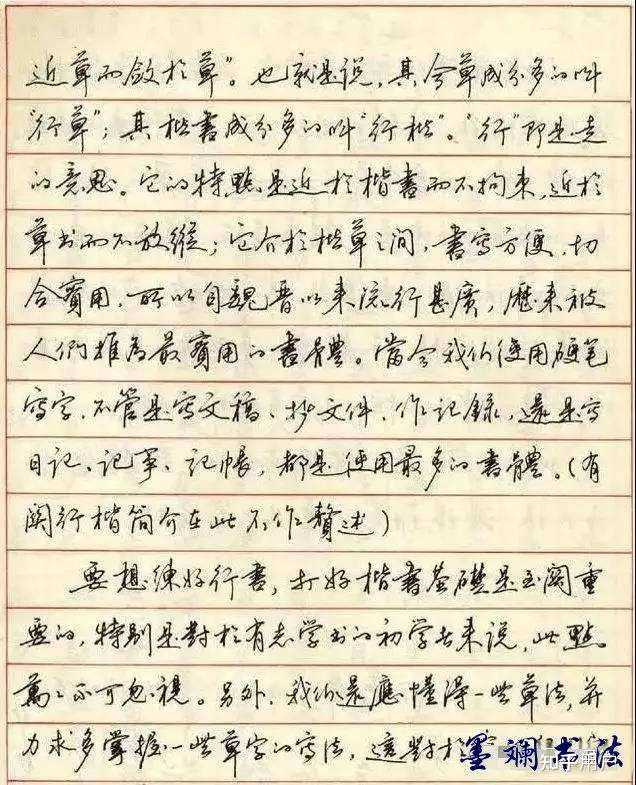 近草而斂於草”。也就是说，其今草成分多的叫
“行草”；其楷書成分多的叫“行楷”。“行”即是走
的意思。它的特點是近於楷書而不拘束，近於
草书而不放縱；它介於楷草之间，書寫方便，切
合實用，所以自魏晋以來流行甚廣，歷来被
人們推為最實用的書體。當今我们使用硬笔
寫字，不管是寫文稿、抄文件、作記録，還是寫
日记、记事、记帳，都是使用最多的書體。（有
関行楷简介在此不作贅述）
要想練好行書，打好楷書基礎是至関重
要的，特别是對於有志学书的初学者来说，此點
萬万不可忽視。另外，我们還應懂得一些草法，并
力求多掌握一些草字的寫法，這對於
墨斓书法
知乎用户